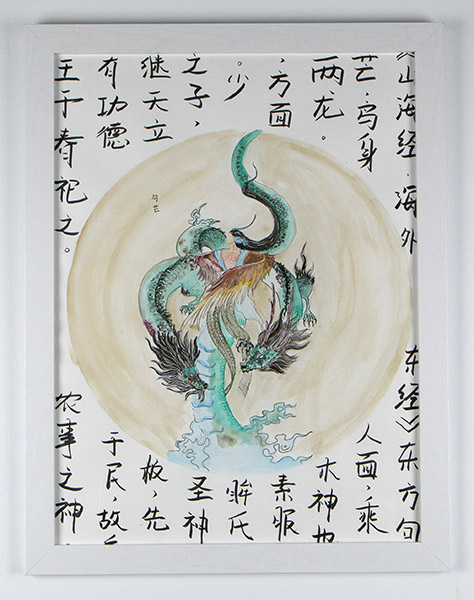 《山海经·海外东经》东方句
芒，鸟身人面，乘
两龙。木神也
，方面素服
。少皞氏
之子，圣神
继天立极，先
有功德于民，故
王于春祀之。农事之神
句芒